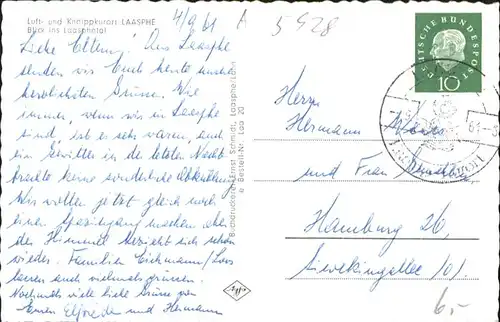 Luft- und Kneippkurort LAASPHE
Blick ins Laasphetal
4/9 61
A
5928
Liebe Eltern! Aus Laasphe
senden wir Euch heute unsere
herzlichsten Grüsse. Wie
immer, wenn wir in Laasphe
sind, ist es sehr warm, auch
ein Gewitter in der letzten Nacht
brachte keine sonderliche Abkühlung.
Wir wollen jetzt gleich noch
einen Spaziergang machen, aber
der Himmel bezieht sich schon
wieder. Familien Eickmann/
lassen auch vielmals grüssen.
Nochmals viele liebe Grüsse von
Euren Elfriede und Hermann
Buchdruckerei Ernst Schmidt, Laasphe/Lahn
Bestell-Nr. Laa 20
Agfa
DEUTSCHE BUNDESPOST
10
Herrn
Hermann
und Frau
Hamburg 26,
Sievekingsallee 101.
6,-